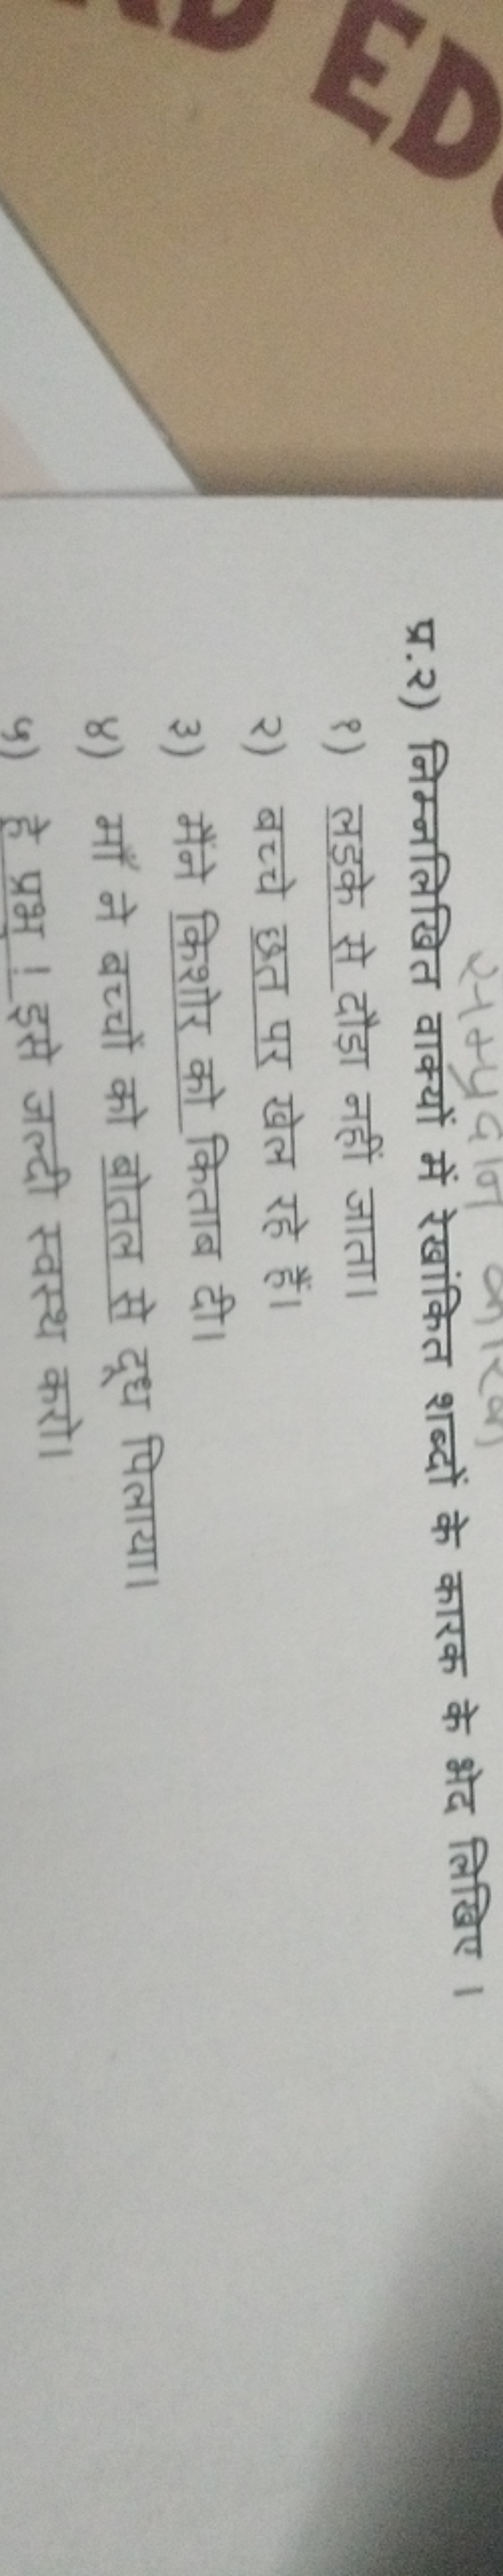 ED
सम्प्रदान कारक
प्र.२) निम्नलिखित वाक्यों में रेखांकित शब्दों के कारक के भेद लिखिए ।
१) लडके से दौडा नहीं जाता।
२) बच्चे छत पर खेल रहे हैं।
३) मैंने किशोर को किताब दी।
४) माँ ने बच्चों को बोतल से दूध पिलाया।
५) हे प्रभु ! इसे जल्दी स्वस्थ करो।